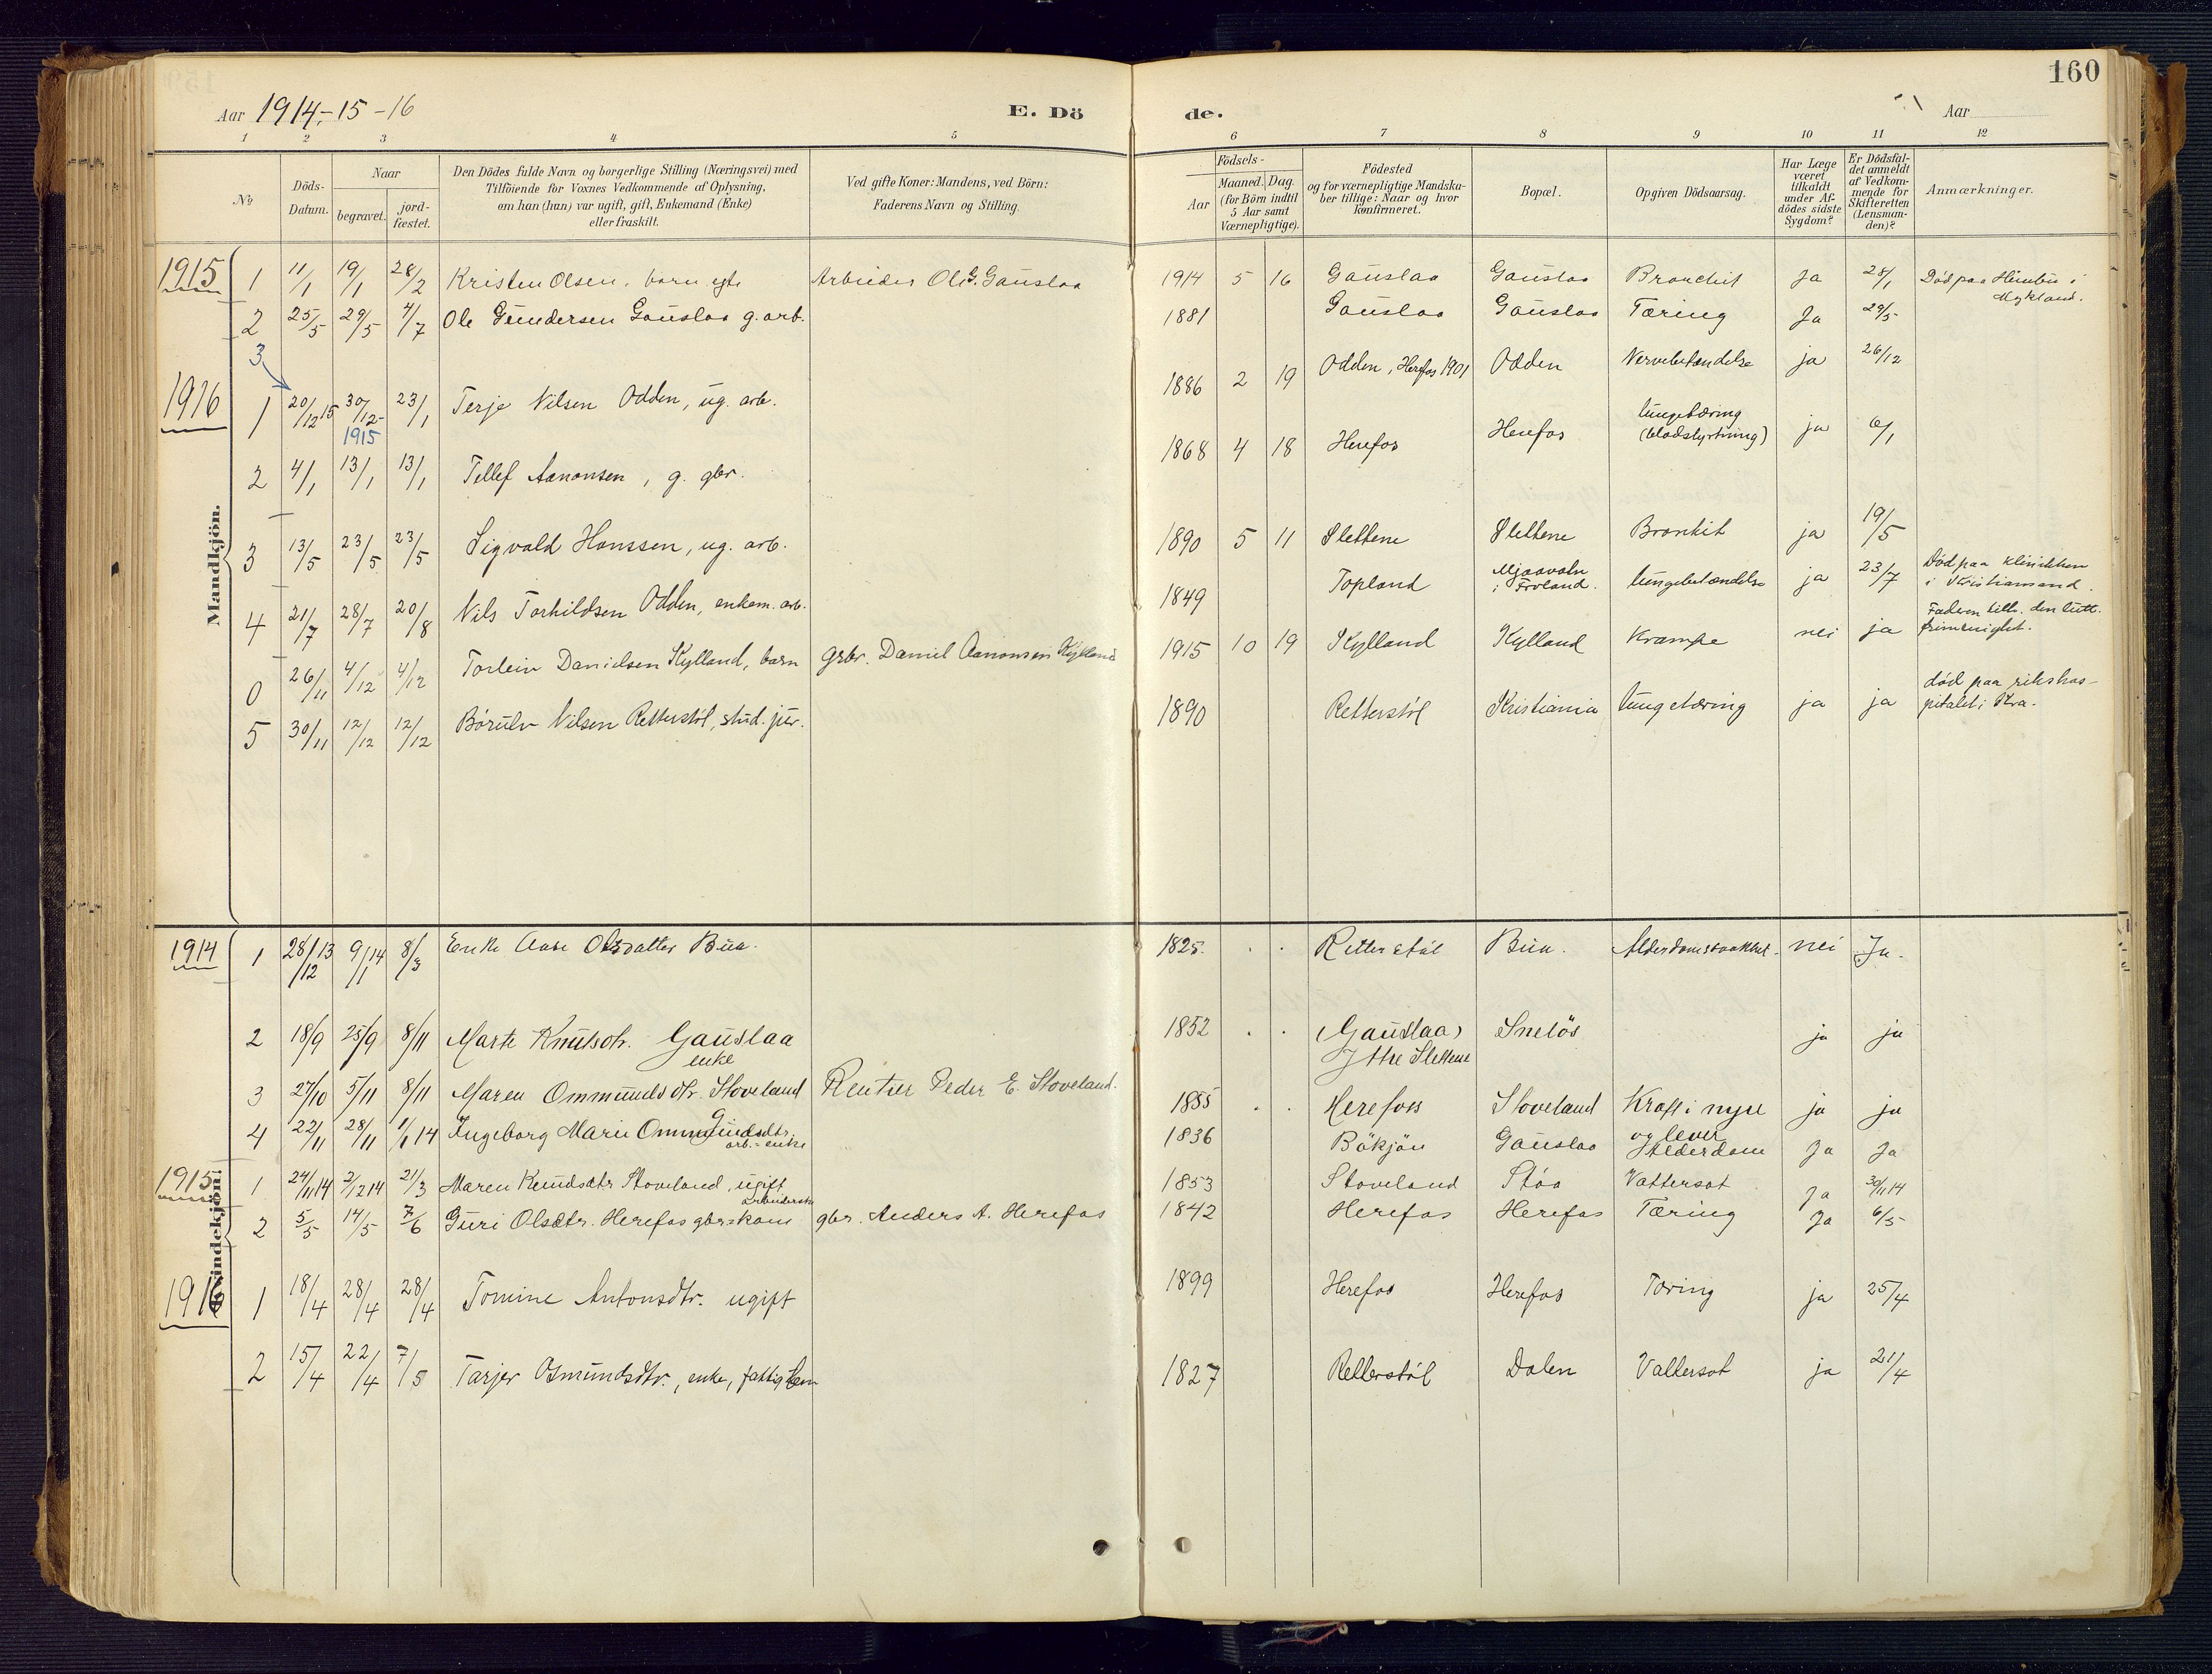 160
Aar 1914-15-16 E. Dö de. Aar
1 2 3 4 5 6 7 8 9 10 11 12
No Döds-Datum. Naar begravet. jord-fæstet. Den Dödes fulde Navn og borgerlige Stilling (Næringsvei) med Tilföiende for Voxnes Vedkommende af Oplysning, om han (hun) var ugift, gift, Enkemand (Enke) eller fraskilt. Ved gifte Koner: Mandens, ved Börn: Faderens Navn og Stilling. Födsels- Aar Maaned. Dag. (for Börn indtil 5 Aar samt Værnepligtige). Födested og for værnepligtige Mandskaber tillige: Naar og hvor konfirmeret. Bopæl. Opgiven Dödsaarsag. Har Læge været tilkaldt under Afdödes sidste Sygdom? Er Dödsfaldet anmeldt af Vedkommende for Skifteretten (Lensmanden)? Anmærkninger.
Mandkjön.
1915 1 11/1 19/1 28/2 Kristen Olsen, barn egte Arbeider Ole G. Gauslaa 1914 5 16 Gauslaa Gauslaa Bronchit Ja 28/1 Död paa Heimbu i
Mykland.
2 25/5 29/5 4/7 Ole Gundersen Gauslaa g. arb. 1881 Gauslaa Gauslaa Tæring Ja 29/5
3
1916 1 20/12 15 30/12- 1915 23/1 Terje Nilsen Odden, ug. arb. 1886 2 19 Odden, Herefos 1901 Odden Nervebetændelse ja 26/12
2 4/1 13/1 13/1 Tellef Aanonsen, g. gbr. 1868 4 18 Herefos Herefos lungetæring
(blodstyrtning) ja 6/1
3 13/5 23/5 23/5 Sigvald Hanssen, ug. arb. 1890 5 11 Slettene Slettene Bronkit ja 19/5
4 21/7 28/7 20/8 Nils Torkildsen Odden, enkem. arb. 1849 Topland Mjaavatn
i Froland. lungebetændelse ja 23/7 Död paa klinikken
i Kristiansand.
0 26/11 4/12 4/12 Torlein Danielsen Kylland, barn grbr. Daniel Aanonsen Kylland 1915 10 19 Kylland Kylland Krampe nei ja Faderen tilh. den lutt.
frimenighet.
5 30/11 12/12 12/12 Börulv Nilsen Retterstöl, stud. jur. 1890 Retterstöl Kristiania lungetæring ja ja död paa rikshos-
pitalet i Kra.
Kvindekjön.
1914 1 28/12 13 9/1 14 8/3 Enke Aase Olsdatter Bua. 1825. Retterstöl Bua. Alderdomssvakhet. nei Ja.
2 18/9 25/9 8/11 Marte Knutsdtr. Gauslaa
enke 1852 (Gauslaa)
Ytre Slettene Snelös ja ja
3 27/10 5/11 8/11 Maren Ommundsdtr. Stoveland Rentier Peder E. Stoveland. 1855 Herefoss Stoveland Kræft i nyre
og lever ja ja
4 22/11 28/11 1/1 14 Ingeborg Marie Ommundsdtr.
arb.-enke 1836 Bökjön Gauslaa Alderdom Ja Ja
1915 1 24/11 14 2/12 14 21/3 Maren Knudsdtr Stoveland, ugift
arbeiderske 1853 Stoveland Stöa Vattersot Ja 30/11 14
2 5/5 14/5 7/6 Guri Olsdtr. Herefos gbrskone gbr. Anders A. Herefos 1842 Herefos Herefos Tæring Ja 6/5
1916 1 18/4 28/4 28/4 Tomine Antonsdtr. ugift 1899 Herefos Herefos Tæring ja 25/4
2 15/4 22/4 7/5 Tarjer Osmundsdtr., enke, fattiglem 1827 Retterstöl Dalen Vattersot ja 21/4